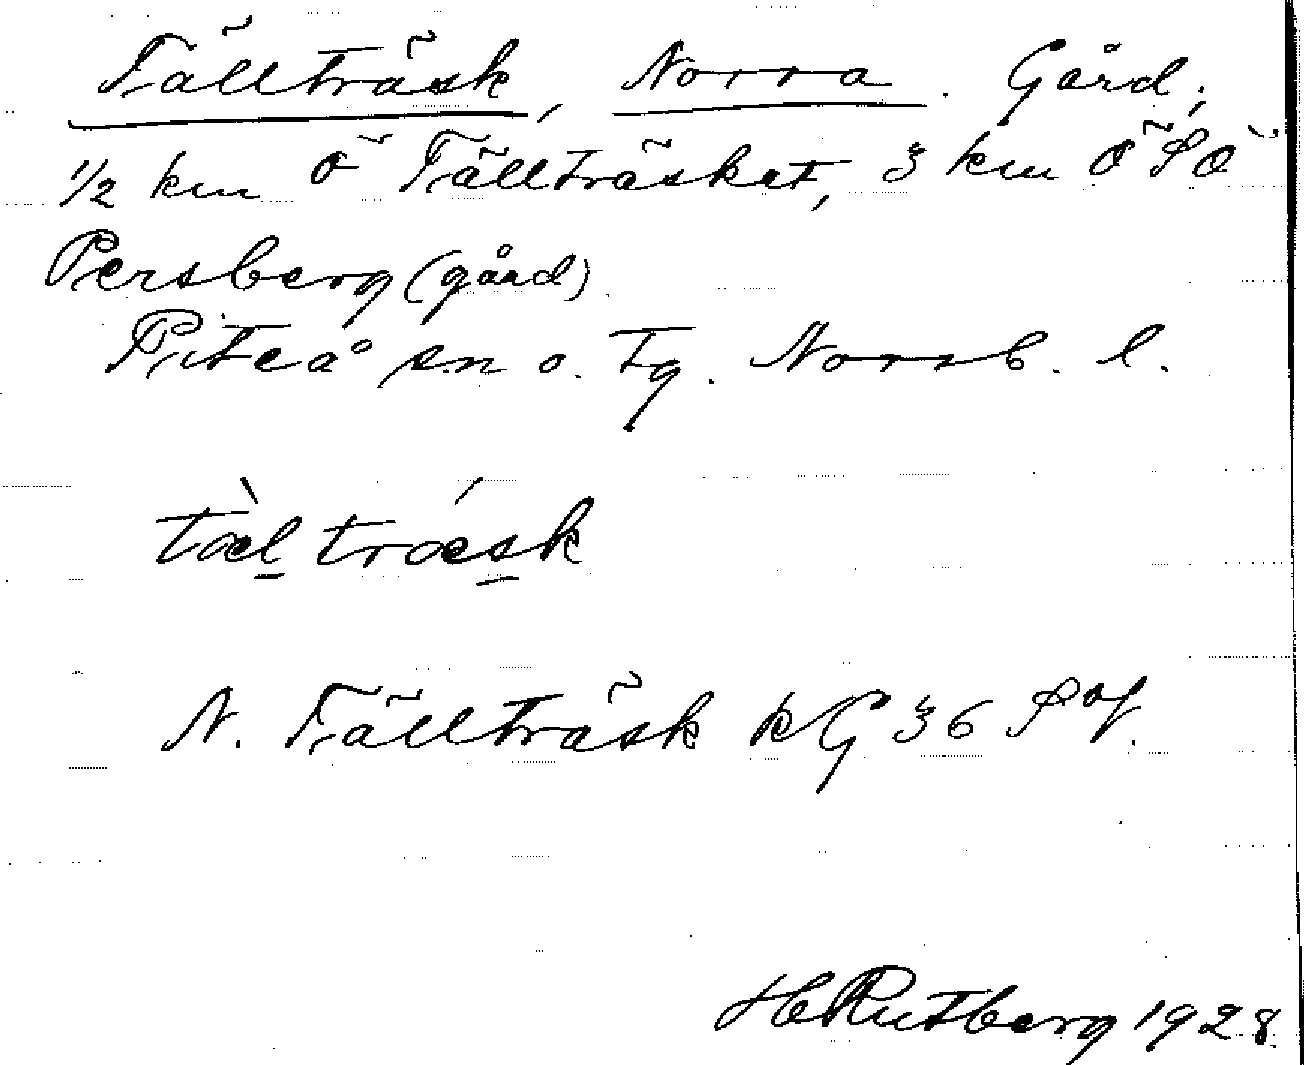 Tällträsk, Norra. Gård,
1/2 km ö Tällträsket, 3 km ÖSÖ
Persberg (gård)
Piteå sn o. tg. Norrb. l.
tæ̀l trǽsk
N. Tällträsk k G 36
H Rutberg 1928